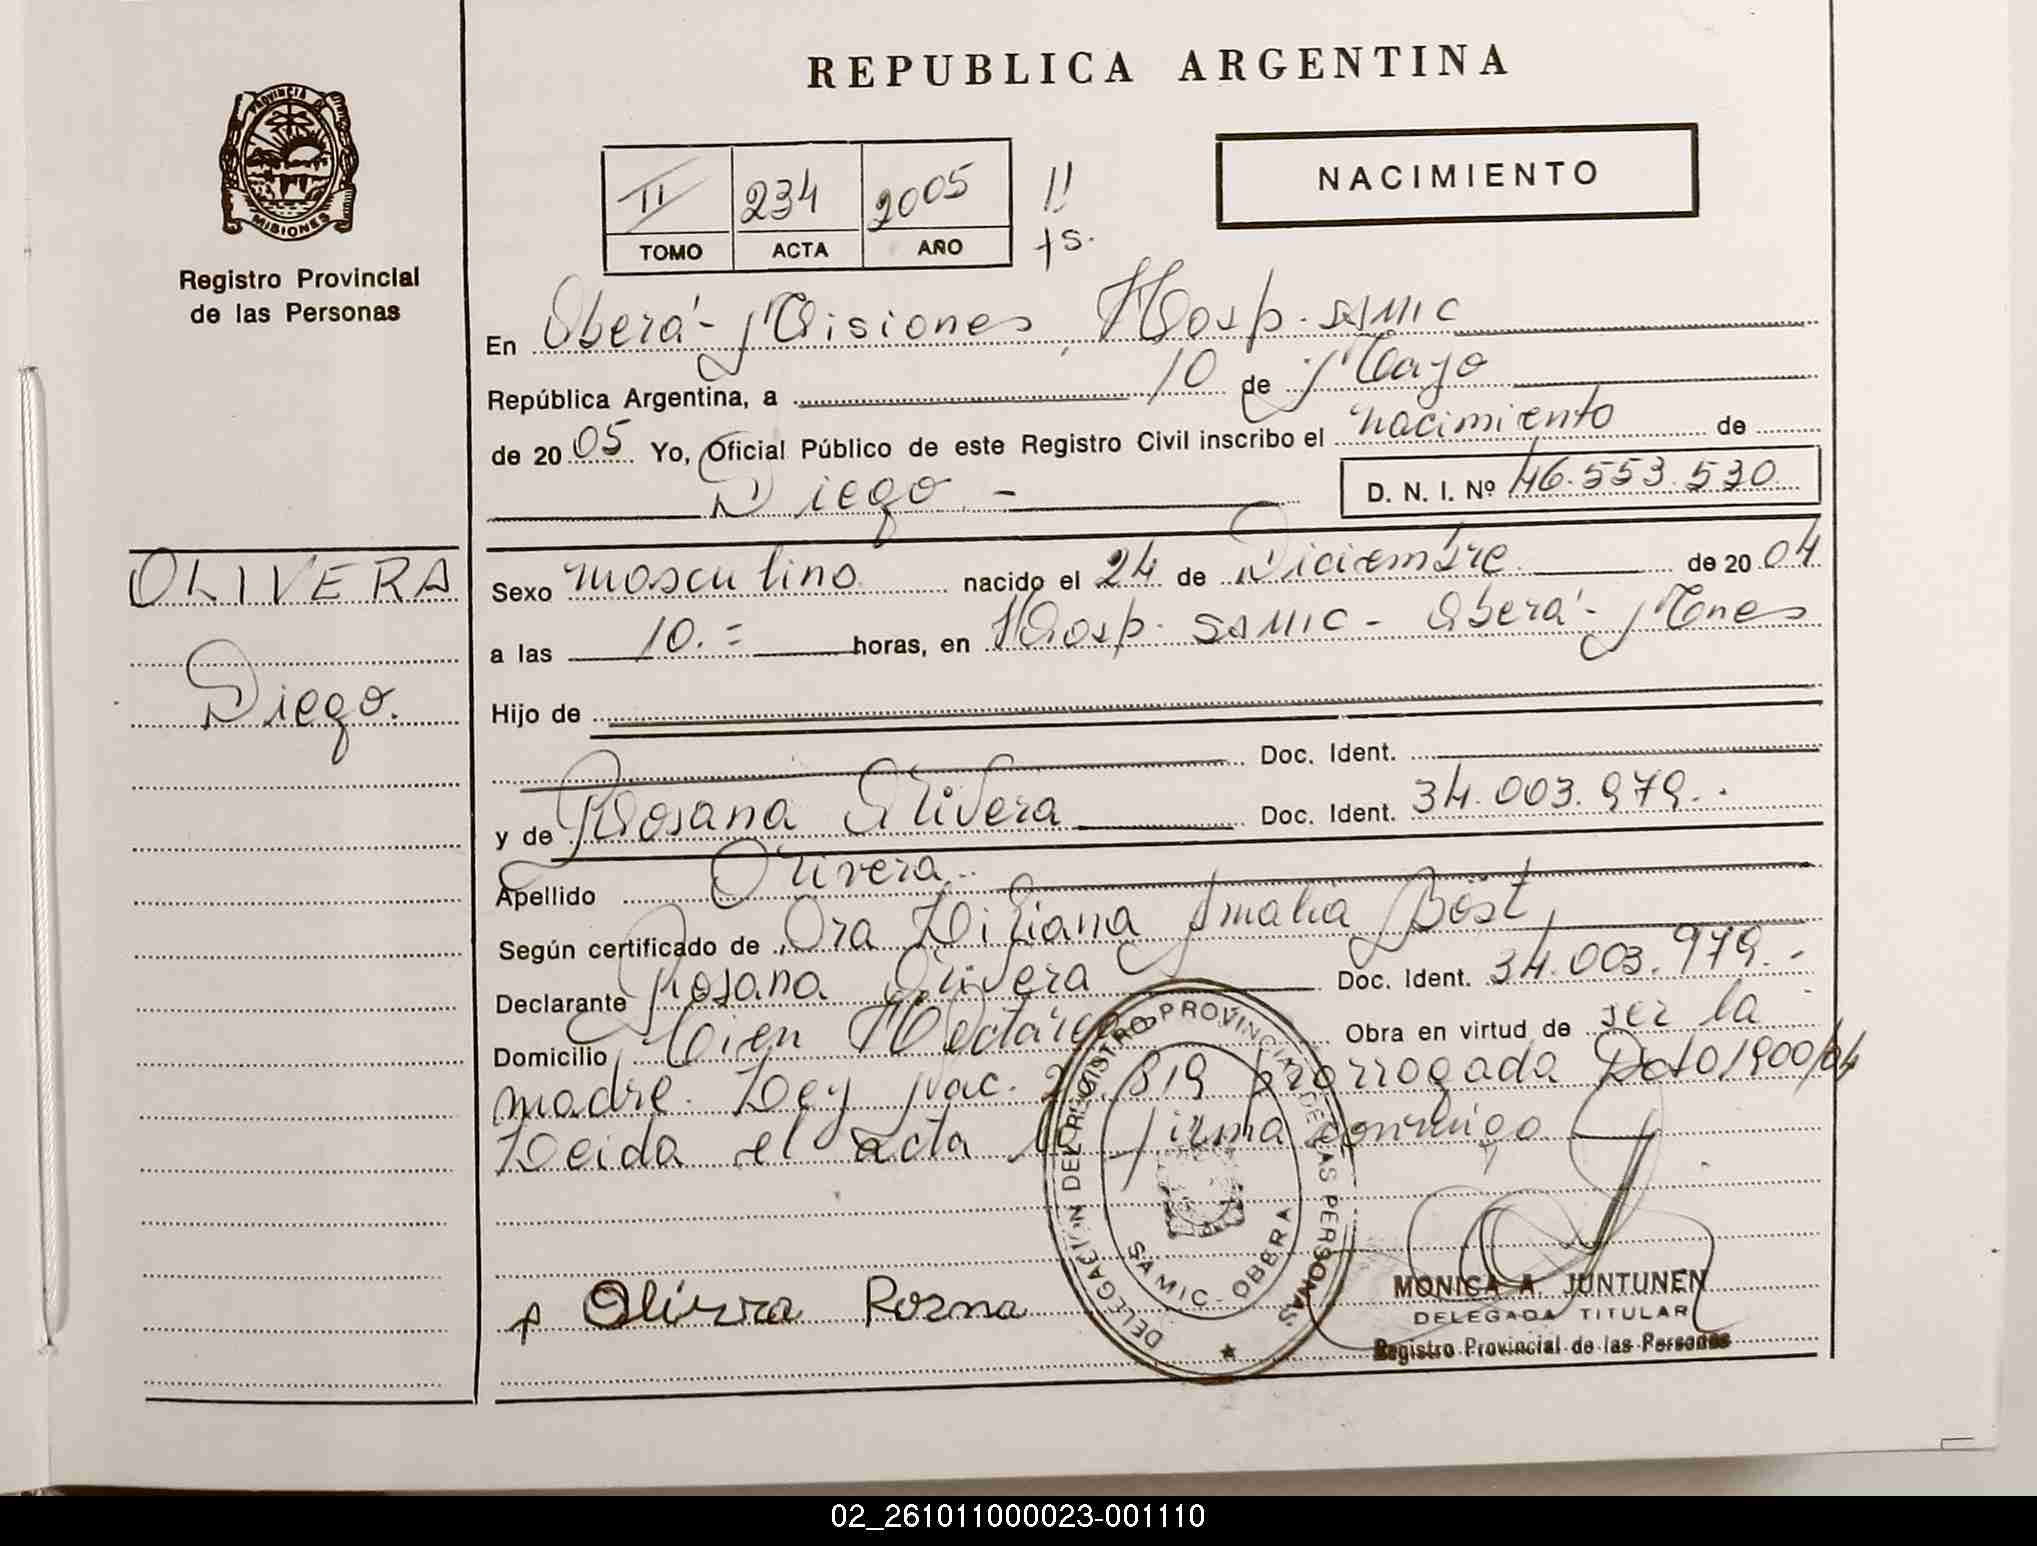 REPUBLICA ARGENTINA
PROVINCIA DE
MISIONES
Registro Provincial
de las Personas
II 234 2005
TOMO ACTA AÑO
NACIMIENTO
En Oberá - Misiones, Hosp. SAMIC
República Argentina, a 10 de Mayo
de 20 05 Yo, Oficial Público de este Registro Civil inscribo el nacimiento de
Diego - D. N. I. Nº 46.553.530
OLIVERA
Diego.
Sexo masculino nacido el 24 de Diciembre de 20 04
a las 10.= horas, en Hosp. SAMIC - Oberá - Mnes
Hijo de
Doc. Ident.
y de Rosana Olivera Doc. Ident. 34.003.979.-
Apellido Olivera.-
Según certificado de Dra Liliana Amalia Böst,
Declarante Rosana Olivera Doc. Ident. 34.003.979.-
Domicilio Cien Hectáreas Obra en virtud de ser la
madre. Ley nac. 819 prorrogada Dcto 1900/04
Leida el acta la firma conmigo
DELEGACION DEL REGISTRO PROVINCIAL DE LAS PERSONAS
SAMIC - OBERA
Olivera Rosna
MONICA A. JUNTUNEN
DELEGADA TITULAR
Registro Provincial de las Personas
02_261011000023-001110